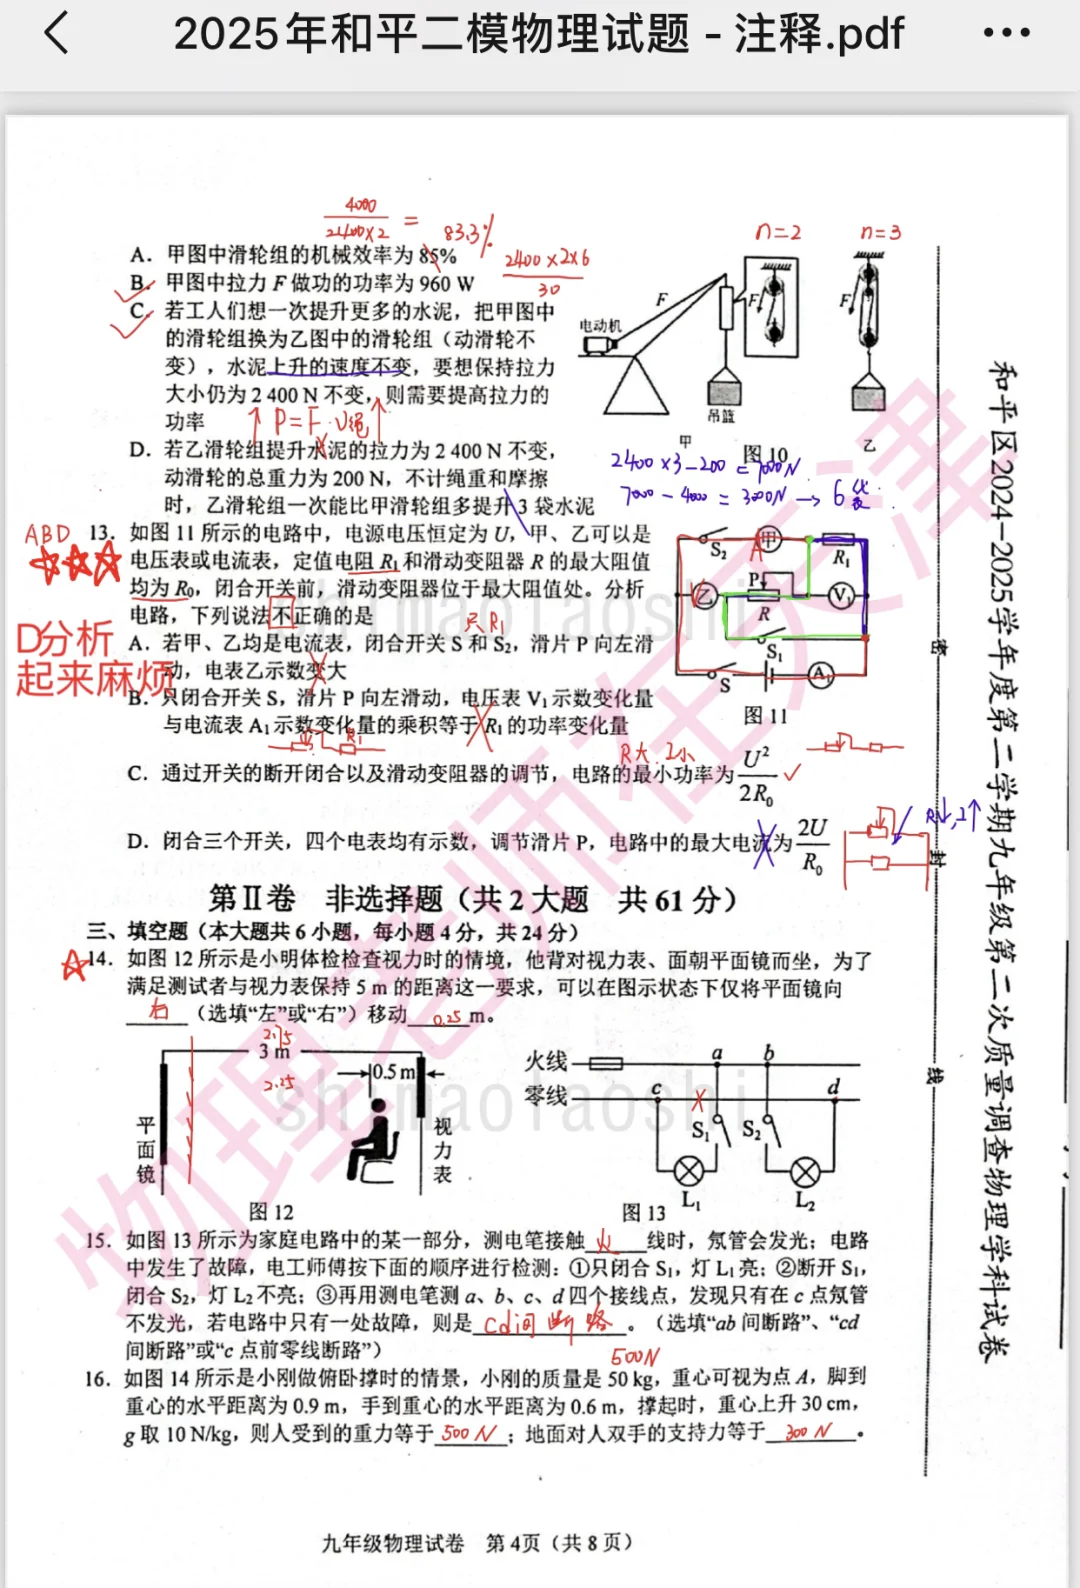 2025年和平二模物理试题 - 注释.pdf
4000
2400×2
=
83.3%
2400×2×6
30
A. 甲图中滑轮组的机械效率为 85%
B. 甲图中拉力 F 做功的功率为 960 W
C. 若工人们想一次提升更多的水泥，把甲图中
的滑轮组换为乙图中的滑轮组（动滑轮不
变），水泥上升的速度不变，要想保持拉力
大小仍为 2 400 N 不变，则需要提高拉力的
功率
P=F·V绳
D. 若乙滑轮组提升水泥的拉力为 2 400 N 不变，
动滑轮的总重力为 200 N，不计绳重和摩擦
时，乙滑轮组一次能比甲滑轮组多提升 3 袋水泥
n=2
n=3
F
F
F
电动机
吊篮
甲
图 10
乙
2400×3-200=7000N
7000-4000=3000N→6袋
ABD
13. 如图 11 所示的电路中，电源电压恒定为 U，甲、乙可以是
电压表或电流表，定值电阻 R₁ 和滑动变阻器 R 的最大阻值
均为 R₀，闭合开关前，滑动变阻器位于最大阻值处。分析
电路，下列说法不正确的是
只R₁
D分析
起来麻烦
A. 若甲、乙均是电流表，闭合开关 S 和 S₂，滑片 P 向左滑
动，电表乙示数变大
B. 只闭合开关 S，滑片 P 向左滑动，电压表 V₁ 示数变化量
与电流表 A₁ 示数变化量的乘积等于 R₁ 的功率变化量
R₁
R大 I小
C. 通过开关的断开闭合以及滑动变阻器的调节，电路的最小功率为 U²/2R₀
D. 闭合三个开关，四个电表均有示数，调节滑片 P，电路中的最大电流为 2U/R₀
R↓,I↑
S₂
甲
A
R₁
P
乙
V
R
V₁
S₁
S
A₁
图 11
第Ⅱ卷 非选择题（共 2 大题 共 61 分）
三、填空题（本大题共 6 小题，每小题 4 分，共 24 分）
14. 如图 12 所示是小明体检检查视力时的情境，他背对视力表、面朝平面镜而坐，为了
满足测试者与视力表保持 5 m 的距离这一要求，可以在图示状态下仅将平面镜向
右（选填“左”或“右”）移动 0.25 m。
2.75
3 m
2.25
0.5 m
平面镜
视力表
图 12
火线
零线
a
b
c
d
S₁
S₂
L₁
L₂
图 13
15. 如图 13 所示为家庭电路中的某一部分，测电笔接触 火 线时，氖管会发光；电路
中发生了故障，电工师傅按下面的顺序进行检测：①只闭合 S₁，灯 L₁ 亮；②断开 S₁，
闭合 S₂，灯 L₂ 不亮；③再用测电笔测 a、b、c、d 四个接线点，发现只有在 c 点氖管
不发光，若电路中只有一处故障，则是 cd间断路 。（选填“ab 间断路”、“cd
间断路”或“c 点前零线断路”）
500N
16. 如图 14 所示是小刚做俯卧撑时的情景，小刚的质量是 50 kg，重心可视为点 A，脚到
重心的水平距离为 0.9 m，手到重心的水平距离为 0.6 m，撑起时，重心上升 30 cm，
g 取 10 N/kg，则人受到的重力等于 500 N ；地面对人双手的支持力等于 300 N 。
九年级物理试卷 第 4页（共 8 页）
和平区2024-2025学年度第二学期九年级第二次质量调查物理学科试卷
密
封
线
物理老师在天津
shimaolaoshi
shimaolaoshi